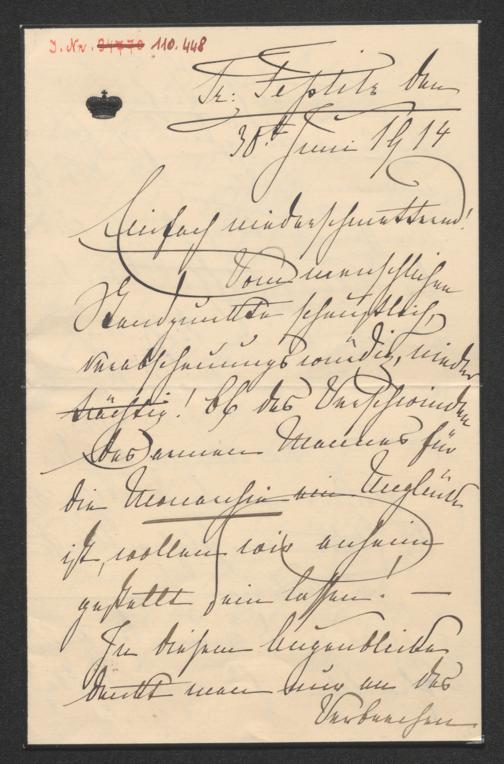 J. Nr. 34770 110.448
Tr: Teplitz den
30t Juni 1914
Einfach niederschmetternd!
Vom menschlichen
Standpunkte scheußlich,
verabscheuungswürdig, nieder
trächtig! Ob das Verschwinden
des armen Mannes für
die Monarchie ein Unglück
ist, wollen wir anheim
gestellt sein lassen! —
In diesem Augenblicke
denkt man nur an das
Verbrechen